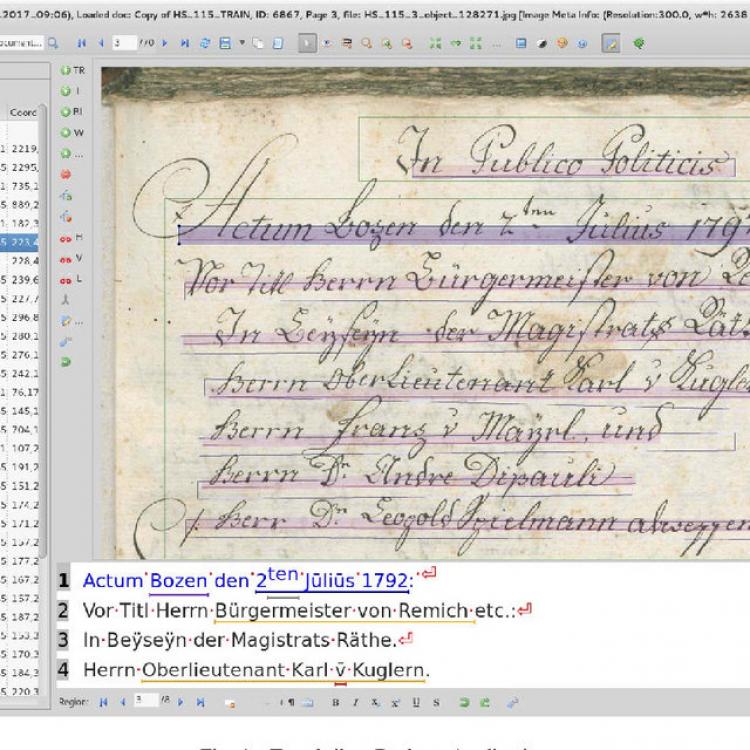 2017_09:06), Loaded doc: Copy of HS_115_TRAIN, ID: 6867, Page 3, file: HS_115_3_object_128271.jpg [Image Meta Info: (Resolution:300.0, w*h: 2638
ocument...
3 /70
TR
Coord
BI
W
2219,
2295,
735,1
889,2
182,3
223,4
228,4
239,6
227,7
296,8
280,1
276,1
242,1
76,17
145,1
704,1
107,2
191,2
151,2
174,2
171,2
157,2
177,2
167,2
157,2
187,2
153,3
170,3
184,3
220,3
H
V
L
In Publico Politicis
Actum Bozen den 2ten Jūliūs 179
Vor Titl Herrn Bürgermeister von
In Beÿseÿn der Magistrats Räth
Herrn Oberlieutenant Karl v̄ Kugle
Herrn Franz v Maÿrl. und
Herrn Dr. Andre Dipauli
Herr Dr. Leopold Spielmann abwesen
1 Actum Bozen den 2ten Jūliūs 1792:
2 Vor Titl Herrn Bürgermeister von Remich etc.:
3 In Beÿseÿn der Magistrats Räthe.
4 Herrn Oberlieutenant Karl v̄ Kuglern.
Region: 3 /8 B I U S